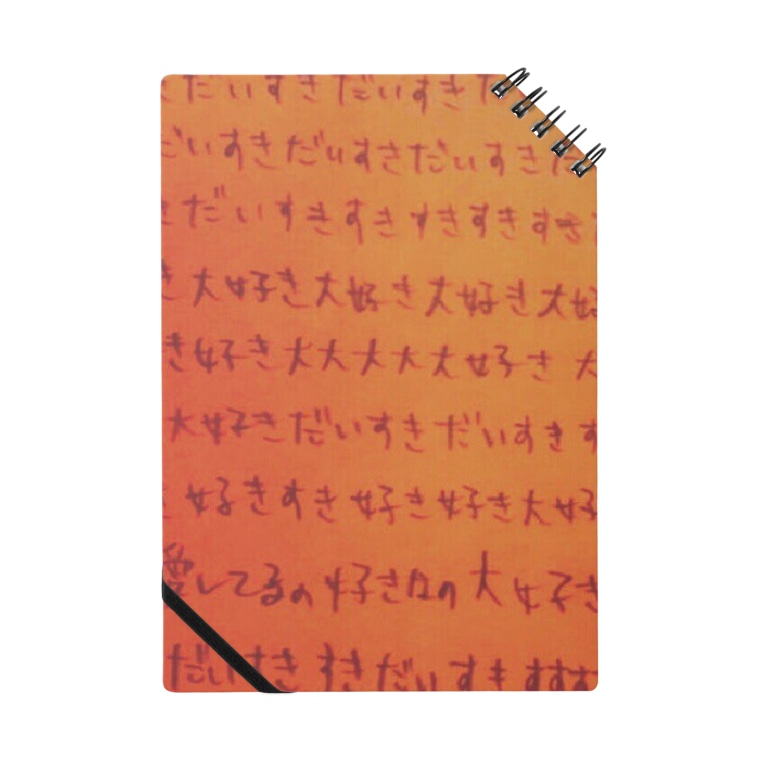 だいすきだいすきた
だいすきだいすきだいすきた
だいすきすきすきすきすき
き大好き大好き大好き大好
き好き大大大大大好き大
大好きだいすきだいすきす
好きすき好き好き大好
愛してるの好きなの大好き
だいすきすきだいすきすすす